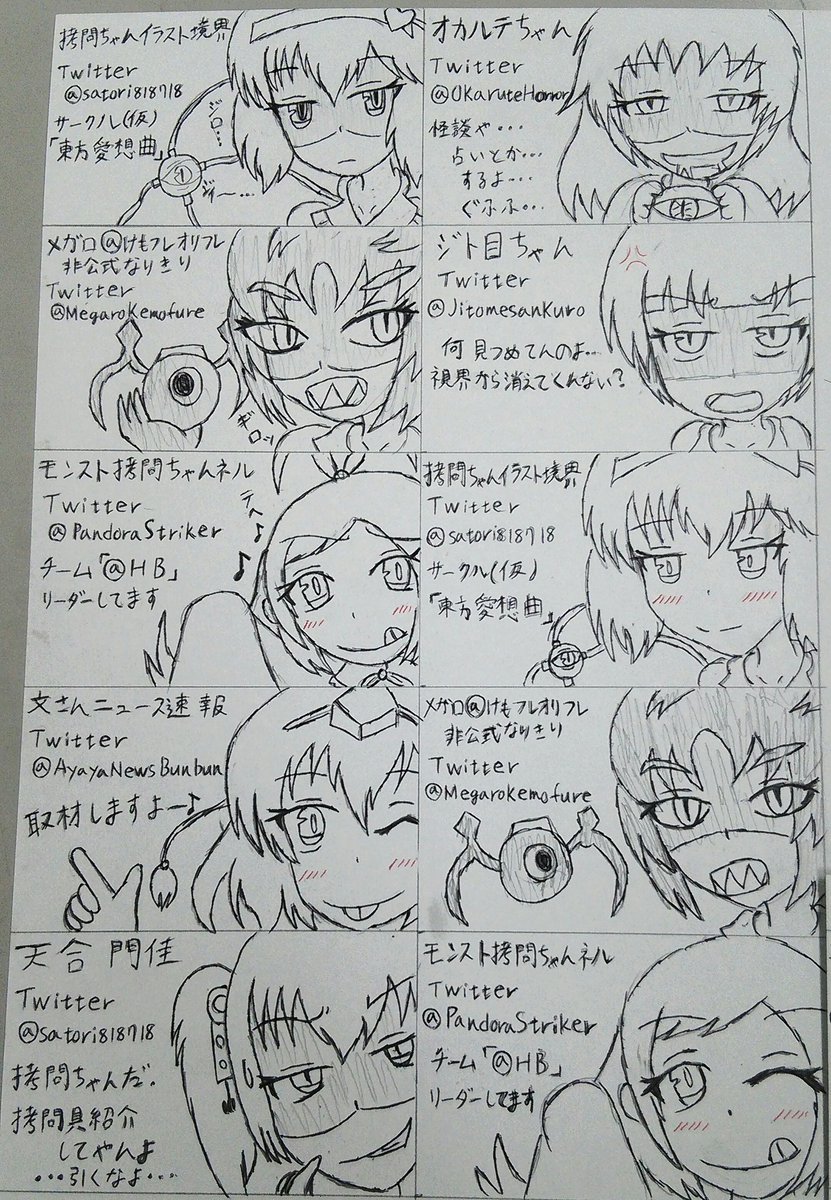 拷問ちゃんイラスト境界
Twitter
@satori818718
サークル(仮)
「東方愛想曲」
ジロ…
ジィー…
オカルテちゃん
Twitter
@OkaruteHorror
怪談や・・・
占いとか…
するよ…
ぐふふ・・・
メガロ@けもフレオリフレ
非公式なりきり
Twitter
@MegaroKemofure
ギロッ
ジト目ちゃん
Twitter
@JitomesanKuro
何見つめてんのよ…
視界から消えてくれない?
モンスト拷問ちゃんネル
Twitter
@PandoraStriker
チーム「@HB」
リーダーしてます
テヘ♪
♪
拷問ちゃんイラスト境界
Twitter
@satori818718
サークル(仮)
「東方愛想曲」
文さんニュース速報
Twitter
@AyayaNewsBunbun
取材しますよー♪
メガロ@けもフレオリフレ
非公式なりきり
Twitter
@MegaroKemofure
天合 門佳
Twitter
@satori818718
拷問ちゃんだ.
拷問具紹介
してやんよ
・・・引くなよ・・・
モンスト拷問ちゃんネル
Twitter
@PandoraStriker
チーム「@HB」
リーダーしてます